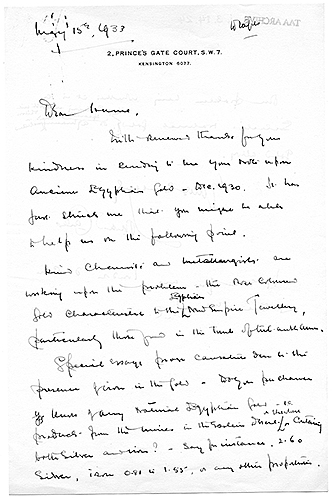 May 15th, 1933
2, PRINCE'S GATE COURT, S.W.7.
KENSINGTON 6037.
Dear
With renewed thanks for your
kindness in sending to me your Note upon
Ancient Egyptian Gold - Dec. 1930. It has
just struck me that you might be able
to help us on the following point.
Chemists and metallurgists are
working upon the problem - the Rose Coloured
Gold characteristic to the Egyptian New Empire Jewellery,
particularly those found in the tomb of Tut.ankh.Amen.
Special essays prove due to the
presence of iron in the gold - Do you perchance
know of any Natural Egyptian Gold - i.e.
products from the mines in the Eastern Desert containing
both silver and iron? - Say for instance, 2.60
Silver, iron 0.81 to 1.55, or any other proportion.